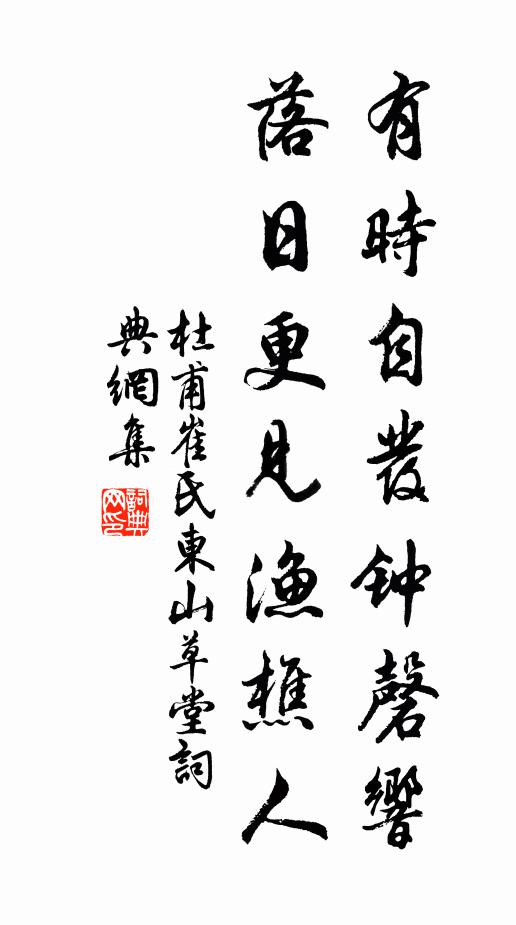 有時自發钟磬響
落日更見漁樵人
杜甫崔氏東山草堂詞
典網集
詞典网印